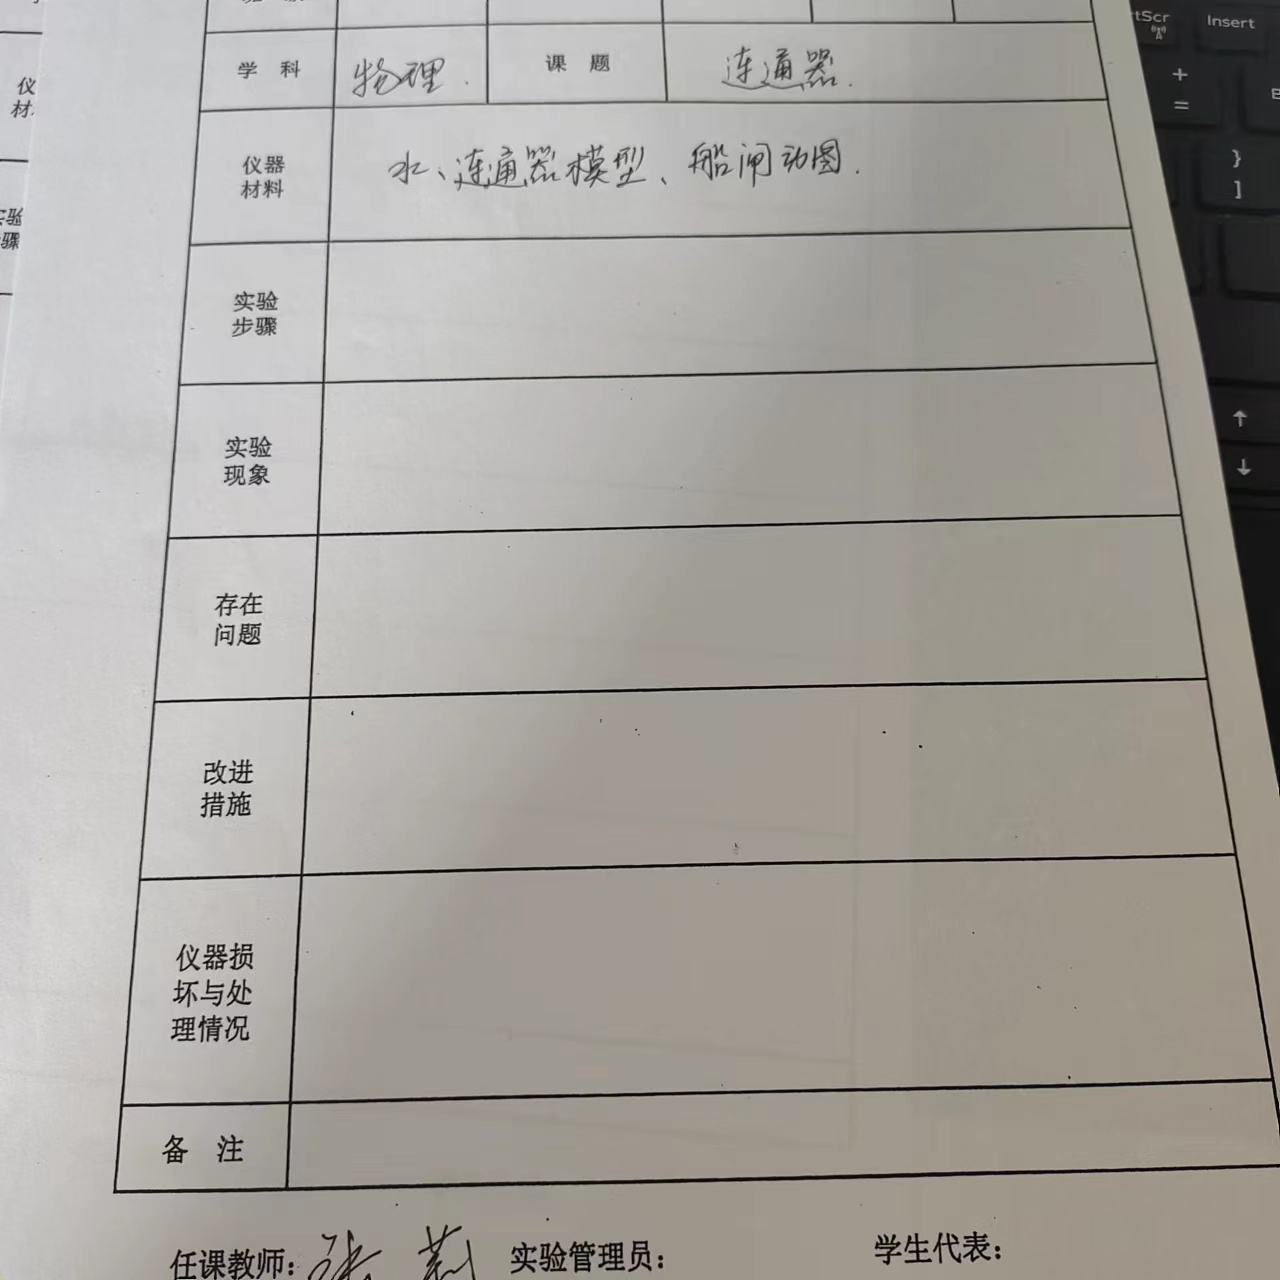 学 科 物理. 课 题 连通器.
仪器
材料
水、连通器模型、船闸动图.
实验
步骤
实验
现象
存在
问题
改进
措施
仪器损
坏与处
理情况
备 注
任课教师: 实验管理员: 学生代表:
仪
材
实验
骤
tScr
Insert
+
=
}
]
↑
↓